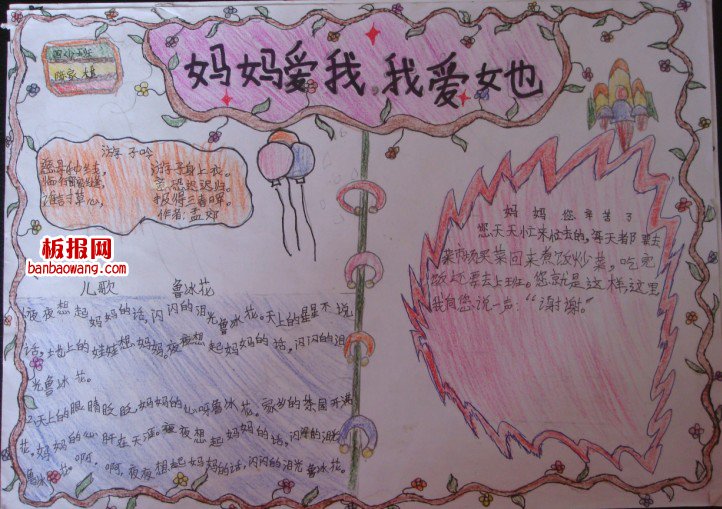 妈妈爱我,我爱她
游子吟
游子身上衣。
意恐迟迟归。
报得三春晖。
作者:孟郊
板报网
banbaowang.com
儿歌 鲁冰花
1.夜夜想起妈妈的话,闪闪的泪光鲁冰花。天上的星星不说
话,地上的娃娃想妈妈。夜夜想起妈妈的话,闪闪的泪
光鲁冰花。
2.天上的眼睛眨眨,妈妈的心呀鲁冰花。家乡的茶园开满
花,妈妈的心肝在天涯。夜夜想起妈妈的话,闪闪的泪光
鲁冰花。啊,啊,夜夜想起妈妈的话,闪闪的泪光鲁冰花。
妈妈您辛苦了
您天天忙来忙去的,每天都要去
菜市场买菜回来煮饭炒菜,吃完
饭还要去上班。您就是这样,这里
我向您说一声:“谢谢。”